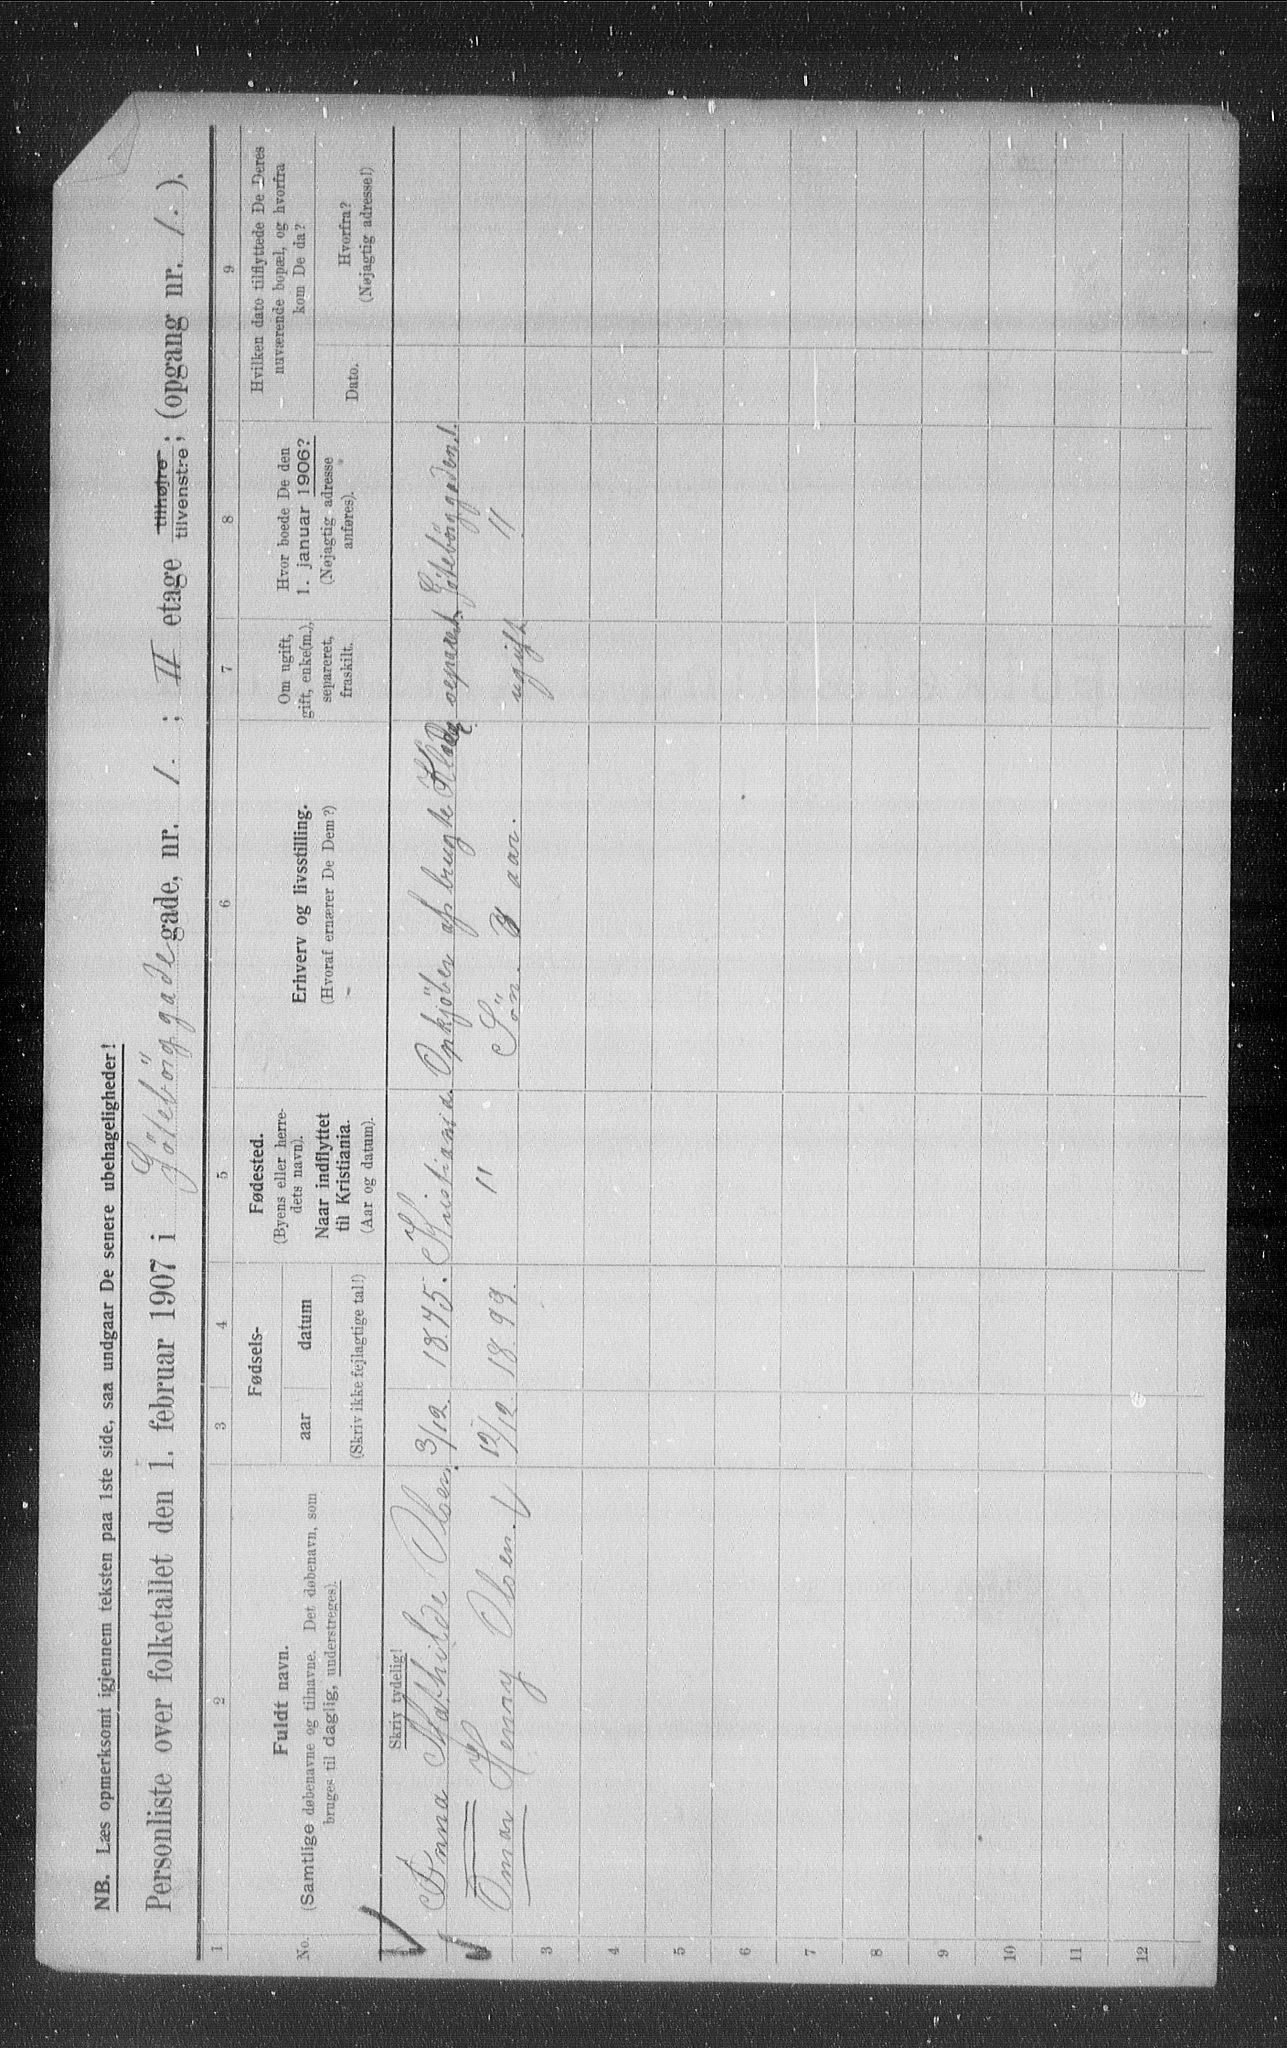 NB. Læs opmerksomt igjennem teksten paa 1ste side, saa undgaar De senere ubehageligheder!
Personliste over folketallet den 1. februar 1907 i Götebörggade gade, nr. 1. ; II etage tilhøjre, tilvenstre, (opgang nr. 1. ).
1 2 3 4 5 6 7 8 9
No.
Fuldt navn.
(Samtlige døbenavne og tilnavne. Det døbenavn, som
bruges til daglig, understreges).
Fødsels-
aar datum
(Skriv ikke fejlagtige tal!)
Fødested.
(Byens eller herre-
dets navn).
Naar indflyttet
til Kristiania.
(Aar og datum).
Erhverv og livsstilling.
(Hvoraf ernærer De Dem?)
Om ugift,
gift, enke(m.),
separeret,
fraskilt.
Hvor boede De den
1. januar 1906?
(Nøjagtig adresse
anføres).
Hvilken dato tilflyttede De Deres
nuværende bopæl, og hvorfra
kom De da?
Dato.
Hvorfra?
(Nøjagtig adresse!)
Skriv tydelig!
Anna Mathilde Olsen. 3/12 1875. Kristiania. Opkjöber af brugte Klæder separert. Götebörggaden 1.
Omar Henry Olsen. 12/12 1899. " Sön. aar. ugift "
3
4
5
6
7
8
9
10
11
12